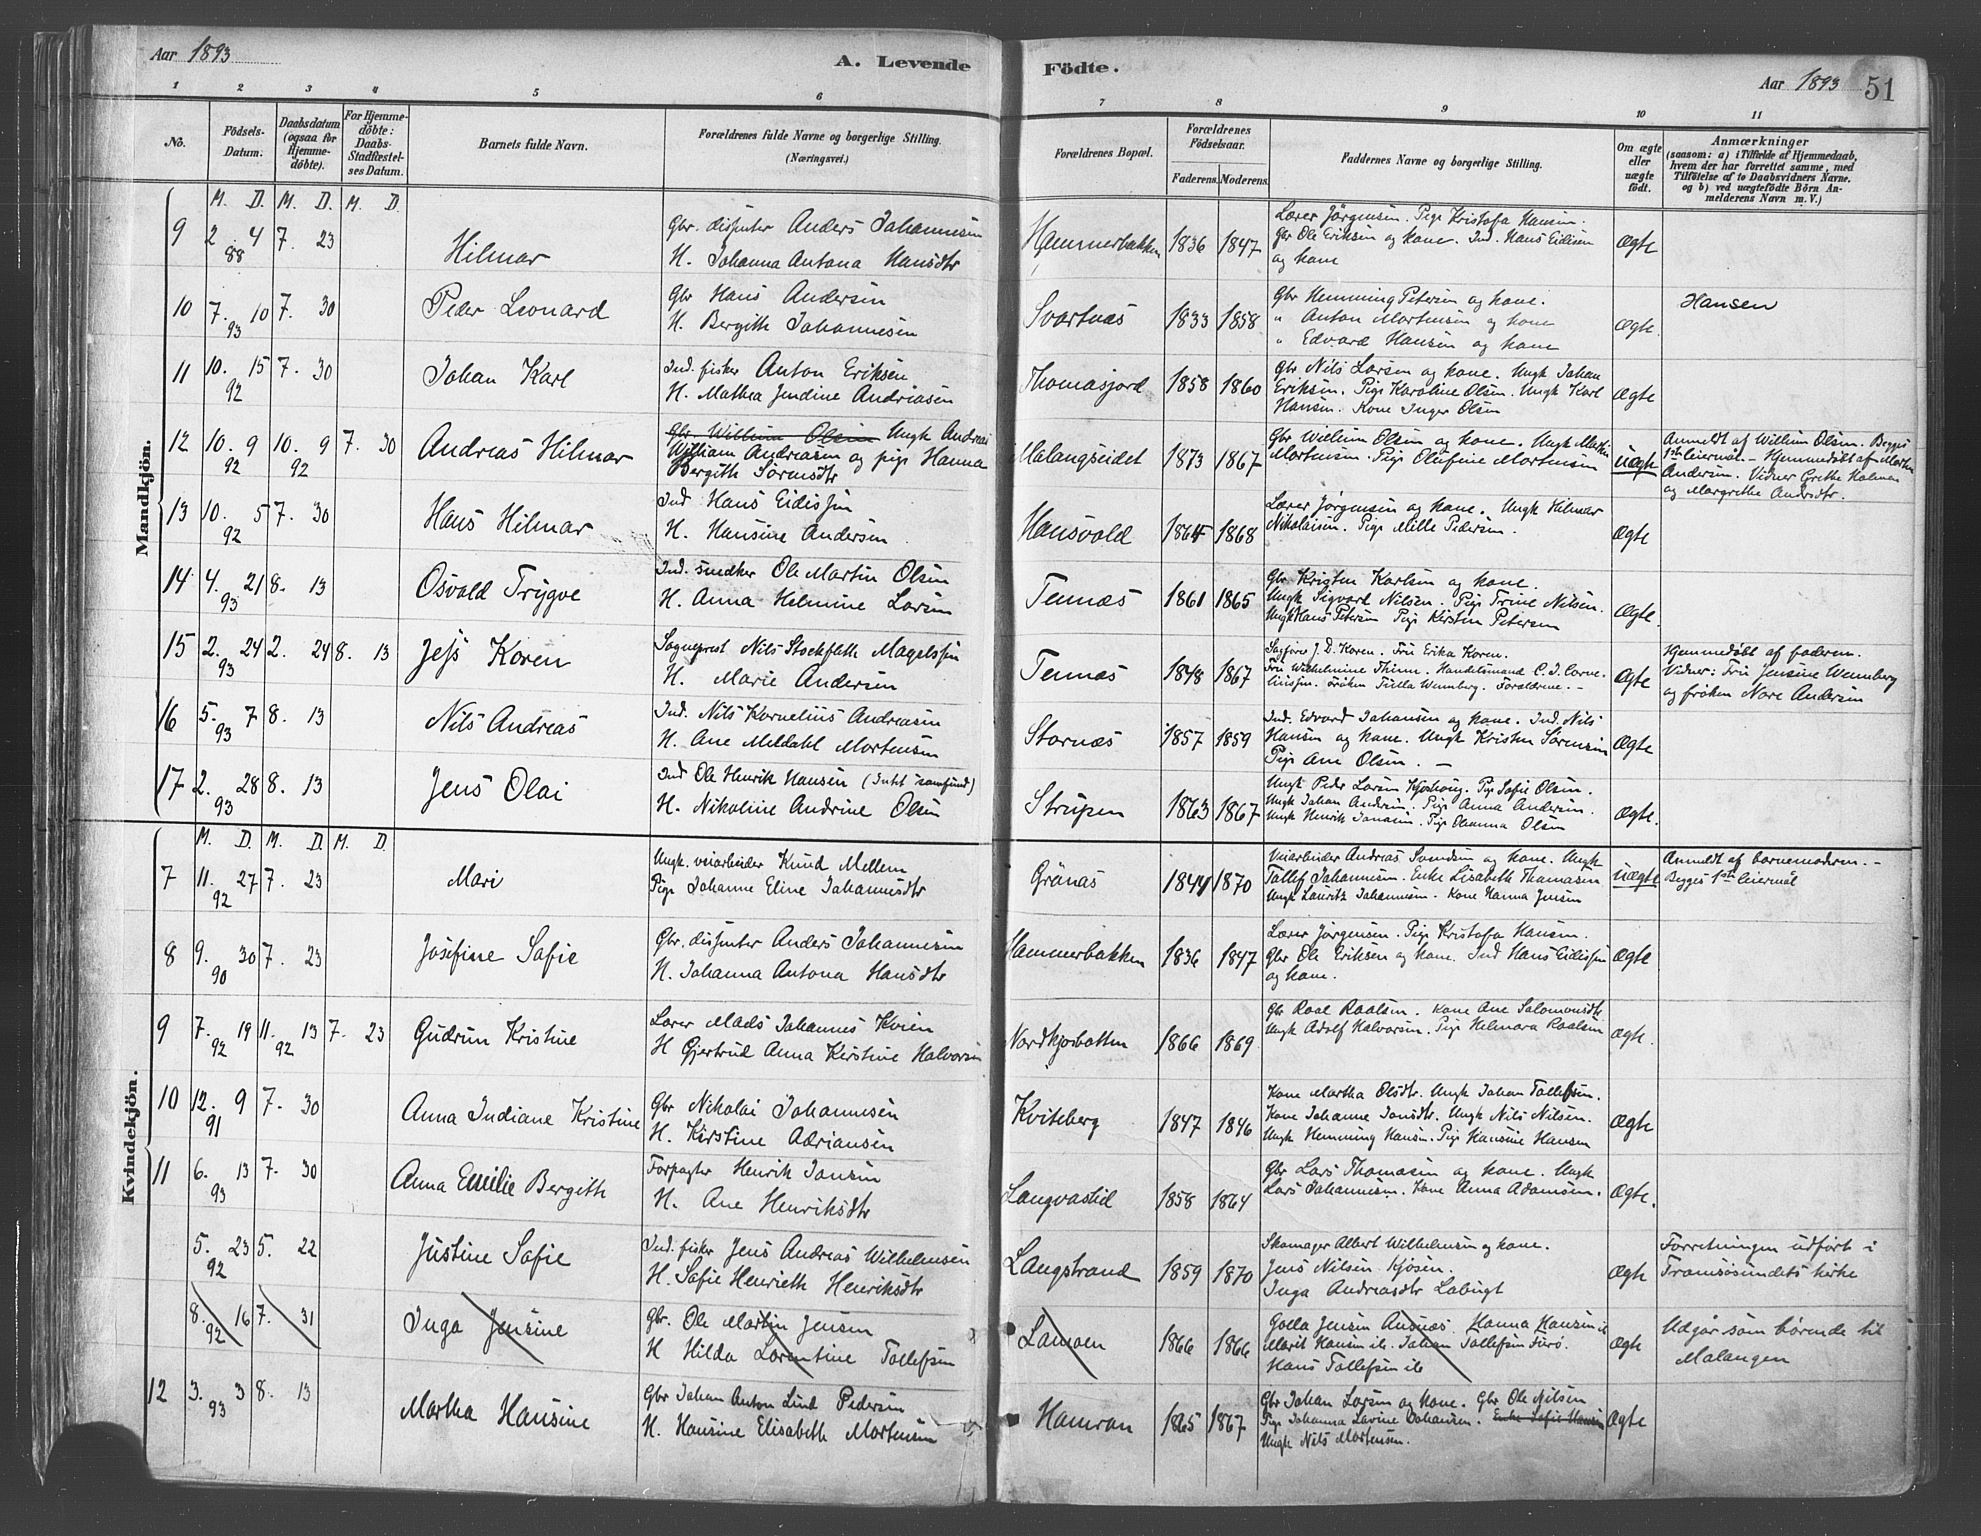 Aar 1893
A. Levende
Födte.
Aar 1893
51
1 2 3 4 5 6 7 8 9 10 11
No.
Födsels-
Datum.
Daabsdatum
(ogsaa for
Hjemme-
döbte).
For Hjemme-
döbte:
Daabs-
Stadfæstel-
ses Datum.
Barnets fulde Navn.
Forældrenes fulde Navne og borgerlige Stilling.
(Næringsvei.)
Forældrenes Bopæl.
Forældrenes
Födselsaar.
Faderens. Moderens.
Faddernes Navne og borgerlige Stilling.
Om ægte
eller
uægte
födt.
Anmærkninger
(saasom: a) i Tilfælde af Hjemmedaab,
hvem der har forrettet samme, med
Tilföielse af to Daabsvidners Navne.
og b) ved uægtefödte Börn An-
melderens Navn m. V.)
Mandkjön.
M. D. M. D. M. D.
9 2 4 88 7. 23
Hilmar
Gbr. Anders Johannesen
H. Johanna Antona Hansdtr
Hammerbakken 1836 1847
Lærer Jörgensen. Pige Kristofa Hansen.
Gbr Ole Eriksen og kone. Ind. Hans Eidisen
og kone
Ægte
10 7. 10 93 7. 30
Peder Leonard
Gbr Hans Andersen
H. Bergith Johannesen
Svartnæs 1833 1858
Gbr Hemming Petersen og kone.
" Anton Mortensen og kone
" Edvard Hansen og kone
Ægte.
Hansen
11 10. 15 92 7. 30
Johan Karl
Ind. fisker Anton Eriksen
H. Mathea Jendine Andreasen
Thomasjord 1858 1860
Gbr Nils Larsen og kone. Ungk Johan
Eriksen. Pige Karoline Olsen. Ungk Karl
Hansen. Kone Inger Olsen
Ægte
12 10. 9 92 10. 9 92 7. 30
Andreas Hilmar
Gbr. William Olsen Ungk Andreas
William Andreasen og pige Hanna
Bergith Sörensdtr
Malangseidet 1873 1867
Gbr William Olsen og kone. Ungk Martin
Mortensen. Pige Olufine Mortensen
Uægte
Anmeldt af William Olsen. Begges
1ste leiermål. - Hjemmedöbt af Marthe
Andersen. Vidner Grethe Holmen
og Margrethe Andrsdtr.
13 10. 5 92 7. 30
Hans Hilmar
Ind Hans Eidissen
H. Hansine Andersen
Hansvold 1864 1868
Lærer Jørgensen og kone. Ungk Hilmar
Nikolaisen. Pige Mille Pedersen.
Ægte
14 4. 21 93 8. 13
Osvald Trygve
Ind. snedker Ole Martin Olsen
H. Anna Helmine Larsen
Tennæs 1861 1865
Gbr Kristen Karlsen og kone.
Ungk Sigvart Nilsen. Pige Trine Nilsen.
Ungk Hans Petersen Pige Kirsten Petersen
Ægte.
15 2. 24 93 2. 24 8. 13
Jess Koren
Sogneprest Nils Stockfleth Magelssen
H. Marie Andersen
Tennæs 1848 1867
Sagförer J. D. Koren. Fru Erika Koren.
Fru Wilhelmine Thinn. Handelsmand C. J. Corne-
liussen. fröken Tulla Wennberg. Forældrene. -
Ægte
Hjemmedöbt af faderen.
Vidner: Fru Jensine Wennberg
og fröken Nore Andersen
16 5. 7 93 8. 13
Nils Andreas
Ind. Nils Kornelius Andreasen
H. Ane Meldahl Mortensen
Stornæs 1857 1859
Ind. Edvard Johansen og kone. Ind. Nils
Hansen og kone. Ungk Kristen Sörensen
Pige Ane Olsen. -
Ægte
17 2. 28 93 8. 13
Jens Olai
Ind Ole Henrik Hansen
H. Nikoline Andrine Olsen
Strupen 1863 1867
Ungk Peder Larsen Kjoshaug. Pige Sofie Olsen.
Ungk Johan Andersen. Pige Anna Andersen.
Ungk Henrik Jonasen. Pige Olsen
Ægte.
Kvindekjön.
M. D. M. D. M. D.
7 11. 27 92 7. 23
Mari
Ungk. veiarbeider Knud Mellem
Pige Johanne Eline Johannesdtr
Grönås 1844 1870
Veiarbeider Andreas Svendsen og kone. Ungk
Tollef Johannesen. Enke Lisabeth Thomasen
Ungk Lauritz Johannesen. Kone Hanna Jensen
Uægte
Anmeldt af barnemoderen. -
Begges 1ste leiermål
8 9. 30 90 7. 23
Josefine Sofie
Gbr. Anders Johannesen
H. Johanna Antona Hansdtr
Hammerbakken 1836 1847
Lærer Jørgensen. Pige Kristofa Hansen.
Gbr Ole Eriksen og kone. Ind Hans Eidissen
og kone.
Ægte
9 7. 19 92 11. 13 92 7. 23
Gudrun Kristine
Lærer Mads Johannes Kvien
H Gjertrud Anna Kirstine Halvorsen
Nordkjosbotten 1866 1869
Gbr Roal Roalsen. Kone Ane Salomonsdtr
Ungk Adolf Halvorsen. Pige Helmara Roalsen
Ægte.
10 12. 9 91 7. 30
Anna Indiane Kristine
Gbr Nikolai Johannesen
H. Kirstine Adriansen
Kviteberg 1847 1846
Kone Martha Olsdtr. Ungk Johan Tollefsen.
Kone Johanne Jonsdtr. Ungk Nils Nilsen.
Ungk Hemming Hansen. Pige Hansine Hansen
Ægte
11 6. 13 93 7. 30
Anna Emilie Bergith
Forpagter Henrik Jonsen
H. Ane Henriksdtr
Langvastid 1858 1864
Gbr Lars Thomasen og kone. Ungk
Lars Johannesen. Kone Anna Adamsen.
Ægte.
5. 23 92 5. 22
Justine Sofie
Ind. fisker Jens Andreas Wilhelmsen
H. Sofie Henrieth Henriksdtr
Langstrand 1859 1870
Skomager Albert Wilhelmsen og kone.
Jens Nilsen Kjosen.
Inga Andreasdtr Labugt
Ægte
Forretningen udfört i
Tromsösundets kirke
8. 16 92 7. 31
Inga Jensine
Gbr. Ole Martin Jensen
H Hilda Lorentine Tollefsen
Lamoen 1866 1866
Golla Jensen Ansnæs. Hanna Hansen ib
Marit Hansen ib. Johan Tollefsen Furö.
Hans Tollefsen ib
Ægte
Udgår som hörende til
Malangen
12 3. 3 93 8. 13
Martha Hansine
Gbr Johan Anton Lind Pedersen
H. Hansine Elisabeth Mortensen
Hamran 1865 1867
Gbr Johan Larsen og kone. Gbr Ole Nilsen
Pige Johanna Lavine Johansen. Enke Sofie Hansen
Ungk Nils Mortensen.
Ægte